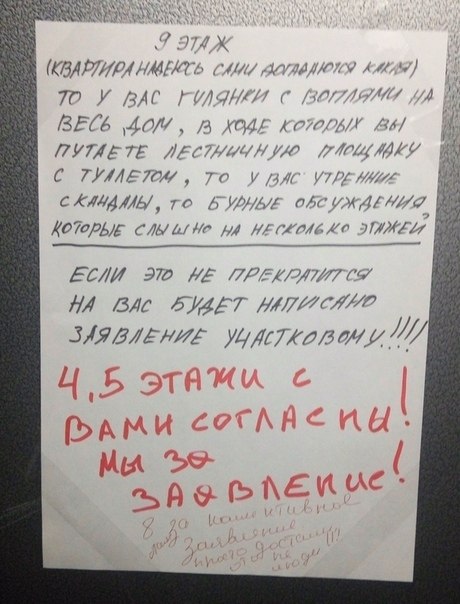 9 ЭТАЖ
(КВАРТИРА НАДЕЮСЬ САМИ ДОГАДАЮТСЯ КАКАЯ)
ТО У ВАС ГУЛЯНКИ С ВОПЛЯМИ НА
ВЕСЬ ДОМ, В ХОДЕ КОТОРЫХ ВЫ
ПУТАЕТЕ ЛЕСТНИЧНУЮ ПЛОЩАДКУ
С ТУАЛЕТОМ, ТО У ВАС УТРЕННИЕ
СКАНДАЛЫ, ТО БУРНЫЕ ОБСУЖДЕНИЯ,
КОТОРЫЕ СЛЫШНО НА НЕСКОЛЬКО ЭТАЖЕЙ
ЕСЛИ ЭТО НЕ ПРЕКРАТИТСЯ
НА ВАС БУДЕТ НАПИСАНО
ЗАЯВЛЕНИЕ УЧАСТКОВОМУ!!!!
4,5 ЭТАЖИ С
ВАМИ СОГЛАСНЫ!
МЫ ЗА
ЗАЯВЛЕНИЕ!
8 за
заявление
просто достали
это не
люди!!!